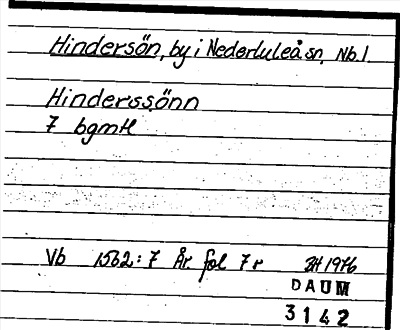 Hindersön, by i Nederluleå sn, Nb. l.
Hinderssönn
7 bgmtl
Vb 1562:7 År. fol 7 r BH 1976
DAUM
3142